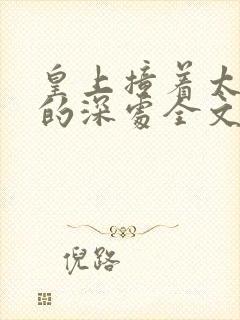 皇上撞着太
的深处全文
倪路